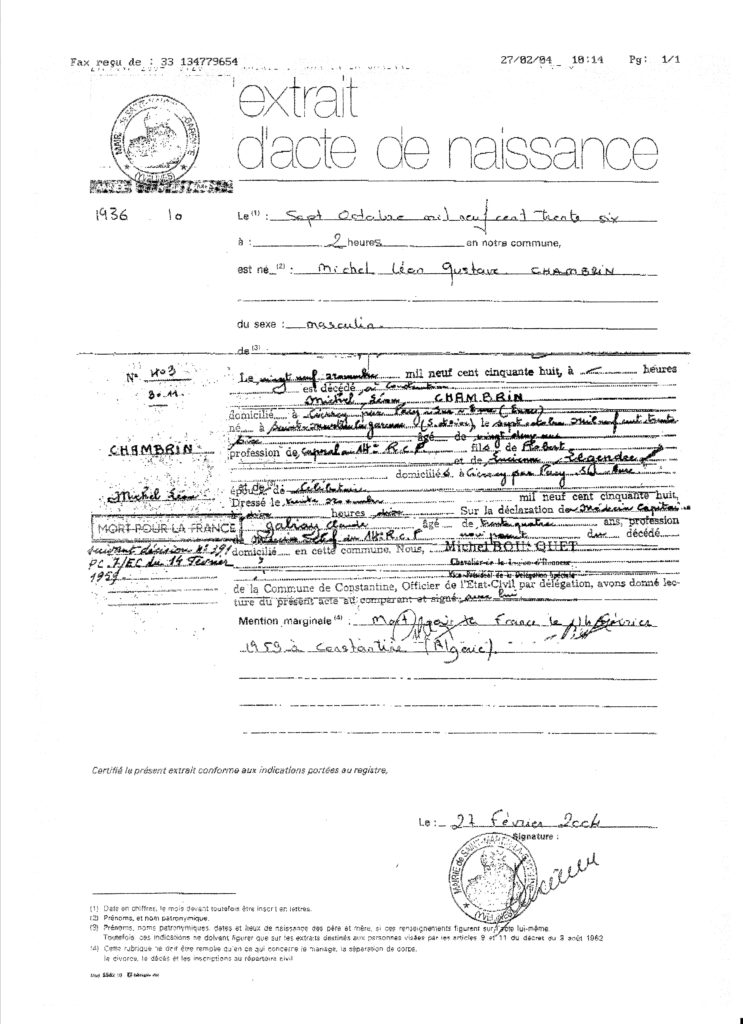 Fax reçu de : 33 134779654 27/02/04 10:14 Pg: 1/1
extrait
d'acte de naissance
MAIRIE de SAINT-MARTIN-LA-GARENNE
(YVELINES)
1936 10
Le (1) : Sept Octobre mil neuf cent trente six
à : 2 heures en notre commune,
est né (2) : Michel Léon Gustave CHAMBRIN
du sexe : masculin
de (3)
N° 403
30.11.
Le vingt neuf novembre mil neuf cent cinquante huit, à heures
est décédé à Constantine
Michel Léon CHAMBRIN
domicilié à par Pacy sur Eure (Eure)
né à Saint Martin la garenne (S. et Oise), le sept octobre mil neuf cent trente
six âgé de vingt deux ans
profession de Caporal au 14e R.C.P. fils de Robert
et de Legendre
domiciliés à par Pacy sur Eure
CHAMBRIN
Michel Léon
époux de Célibataire
Dressé le trente novembre mil neuf cent cinquante huit,
heures Sur la déclaration de Médecin Capitaine
MORT POUR LA FRANCE
Claude âgé de trente quatre ans, profession
Médecin Chef du 14e R.C.P. du décédé
suivant décision N° 191
PC.7/EC du 14 Février
1959
domicilié en cette commune. Nous, Michel BOUQUET
Chevalier de la Légion d'Honneur
Vice-Président de la Délégation Spéciale
de la Commune de Constantine, Officier de l'Etat-Civil par délégation, avons donné lec-
ture du présent acte au comparant et signé avec lui
Mention marginale (4) : Mort pour la France le 14 Février
1959 à Constantine (Algérie).
Certifié le présent extrait conforme aux indications portées au registre,
Le : 27 Février 2004
Signature :
MAIRIE de SAINT-MARTIN-LA-GARENNE
(YVELINES)
(1) Date en chiffres, le mois devant toutefois être inscrit en lettres.
(2) Prénoms, et nom patronymique.
(3) Prénoms, noms patronymiques, dates et lieux de naissance des père et mère, si ces renseignements figurent sur l'acte lui-même.
Toutefois, ces indications ne doivent figurer que sur les extraits destinés aux personnes visées par les articles 9 et 11 du décret du 3 août 1962
(4) Cette rubrique ne doit être remplie qu'en ce qui concerne le mariage, la séparation de corps,
le divorce, le décès et les inscriptions au répertoire civil